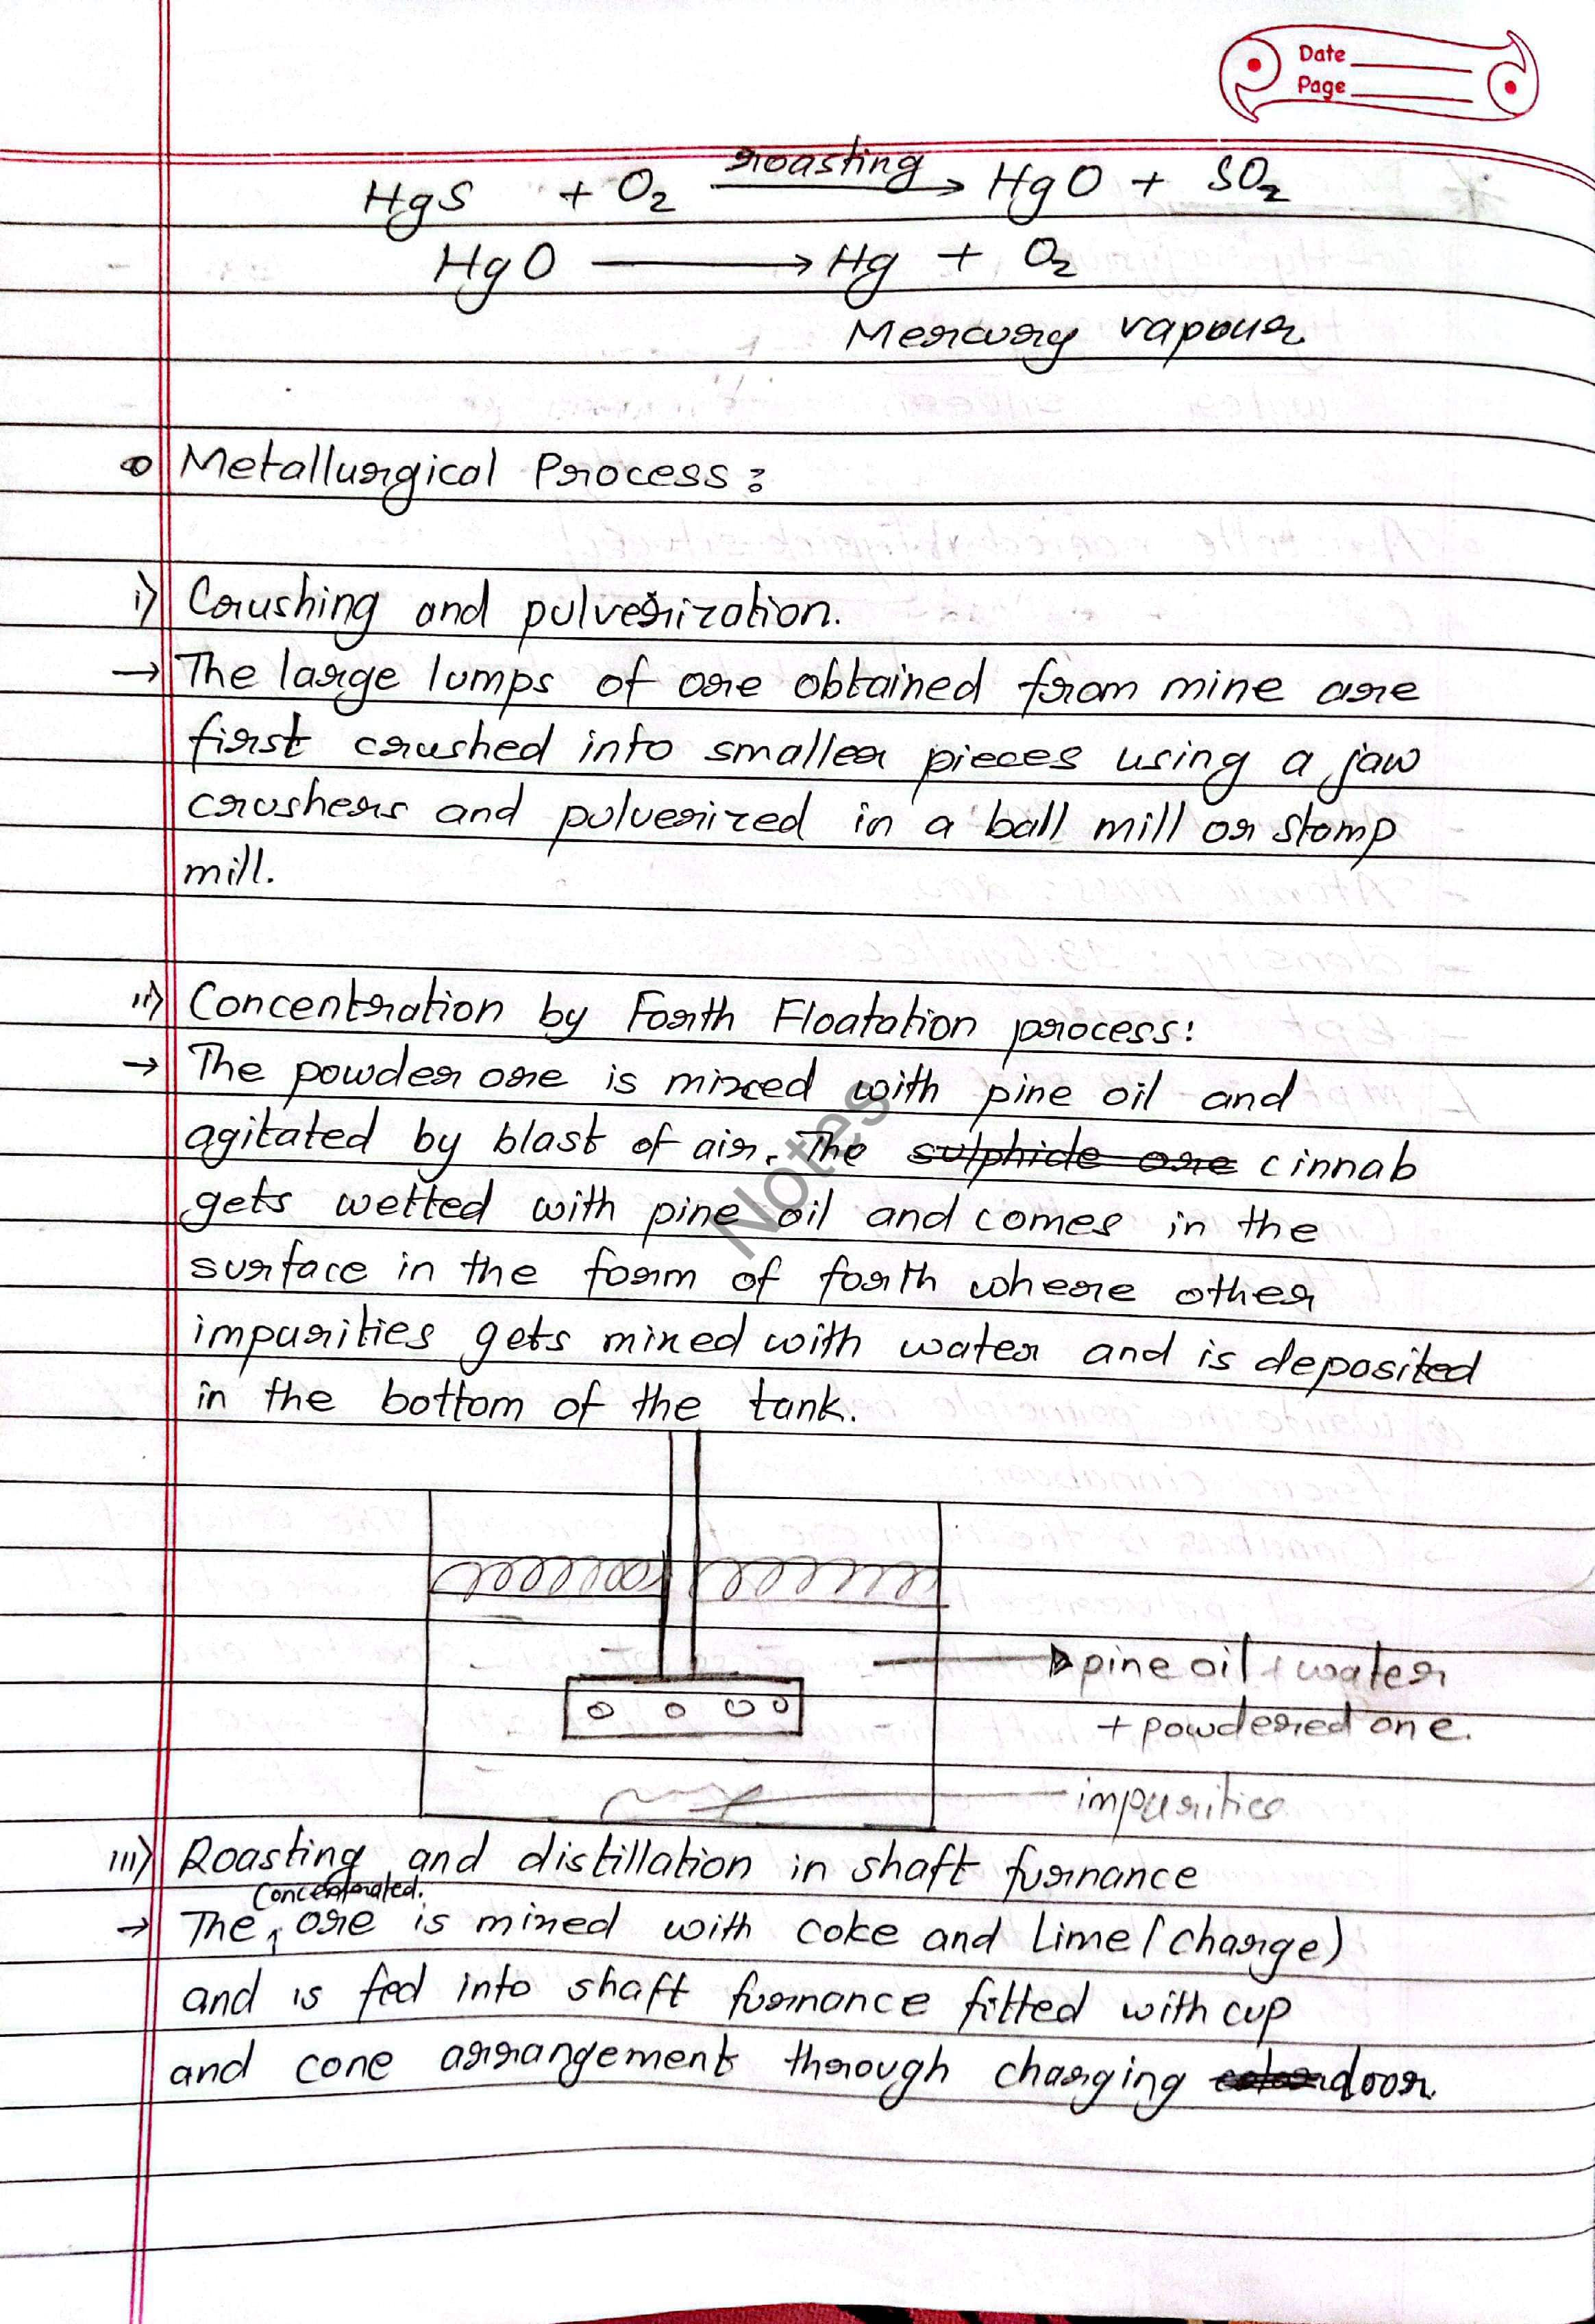 Date
Page
HgS + O₂ roasting → HgO + SO₂
HgO → Hg + O₂
Mercury vapour
Metallurgical Process:
i) Crushing and pulverization.
→ The large lumps of ore obtained from mine are
first crushed into smaller pieces using a jaw
crushers and pulverized in a ball mill or stamp
mill.
ii) Concentration by Forth Floatation process:
→ The powder ore is mixed with pine oil and
agitated by blast of air. The sulphide ore cinnab
gets wetted with pine oil and comes in the
surface in the form of forth where other
impurities gets mixed with water and is deposited
in the bottom of the tank.
Notes
pine oil + water
+ powdered one.
impurities
iii) Roasting and distillation in shaft furnance
concentrated.
→ The ore is mixed with coke and lime (charge)
and is fed into shaft furnance fitted with cup
and cone arrangement through charging door.